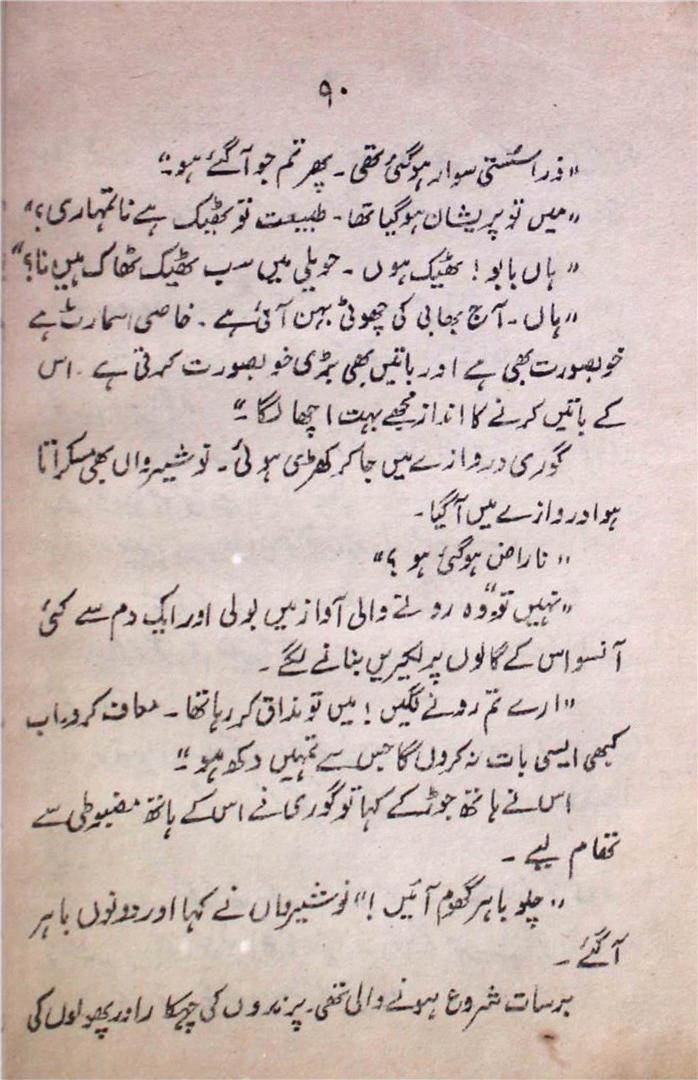 ۹۰
"ذرا سستی سوار ہوگئی تھی۔ پھر تم جو آگئے ہو۔"
"میں تو پریشان ہوگیا تھا۔ طبیعت تو ٹھیک ہے نا تمہاری؟"
"ہاں بابو! ٹھیک ہوں۔ حویلی میں سب ٹھیک ٹھاک ہیں نا؟"
"ہاں۔ آج بھابی کی چھوٹی بہن آئی ہے۔ خاصی اسمارٹ ہے
خوبصورت بھی ہے اور باتیں بھی بڑی خوبصورت کرتی ہے۔ اس
کے باتیں کرنے کا انداز مجھے بہت اچھا لگا۔"
گوری دروازے میں جا کر کھڑی ہوئی۔ نوشیرواں بھی مسکراتا
ہوا دروازے میں آگیا۔
"ناراض ہوگئی ہو؟"
"نہیں تو" وہ رونے والی آواز میں بولی اور ایک دم سے کئی
آنسو اس کے گالوں پر لکیریں بنانے لگے۔
"ارے تم رونے لگیں! میں تو مذاق کر رہا تھا۔ معاف کردو۔ اب
کبھی ایسی بات نہ کروں گا جس سے تمہیں دکھ ہو۔"
اس نے ہاتھ جوڑ کے کہا تو گوری نے اس کے ہاتھ مضبوطی سے
تھام لیے۔
"چلو باہر گھوم آئیں!" نوشیرواں نے کہا اور دونوں باہر
آگئے۔
برسات شروع ہونے والی تھی۔ پرندوں کی چہکار اور پھولوں کی